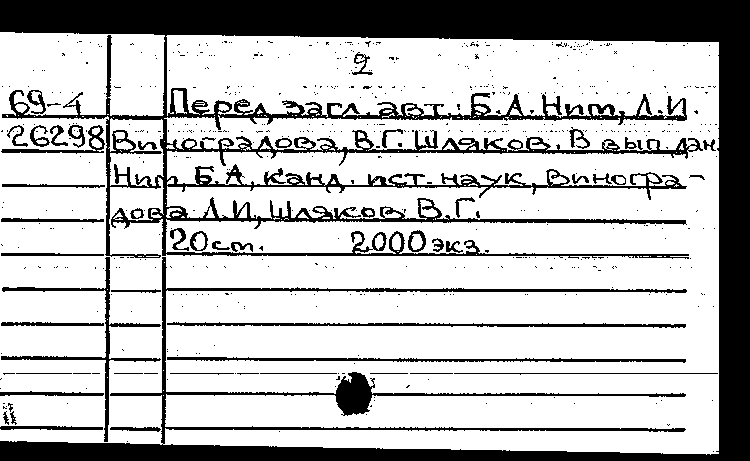 2
69-4 Перед загл. авт.: Б.А. Ним, Л.И.
26298 Виноградова, В.Г. Шляков. В вып. дан.
Ним, Б.А, канд. ист. наук, Виногра-
дова Л.И, Шляков В.Г.
20 ст. 2000 экз.